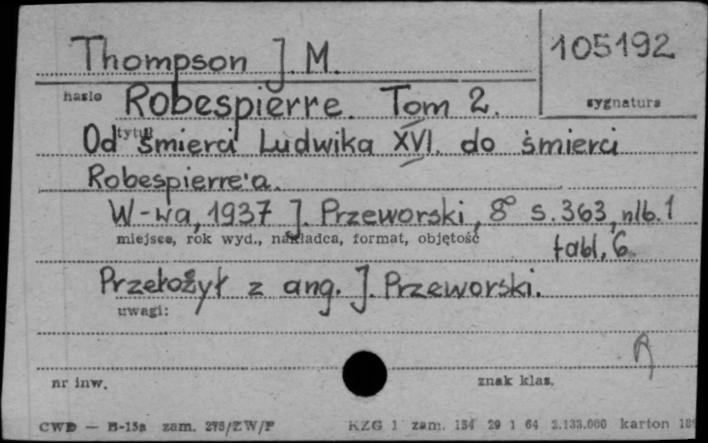 Thompson J. M. 105192
hasło Robespierre. Tom 2. sygnatura
tytuł Od śmierci Ludwika XVI. do śmierci
Robespierre'a.
W-wa, 1937 J. Przeworski, 8° s. 363, nlb. 1
miejsce, rok wyd., nakładca, format, objętość tabl. 6.
Przełożył z ang. J. Przeworski.
uwagi:
R
nr inw. znak klas.
CWD — B-15a zam. 275/ZW/F KZG 1 zam. 154 29 1 64 2.133.000 karton